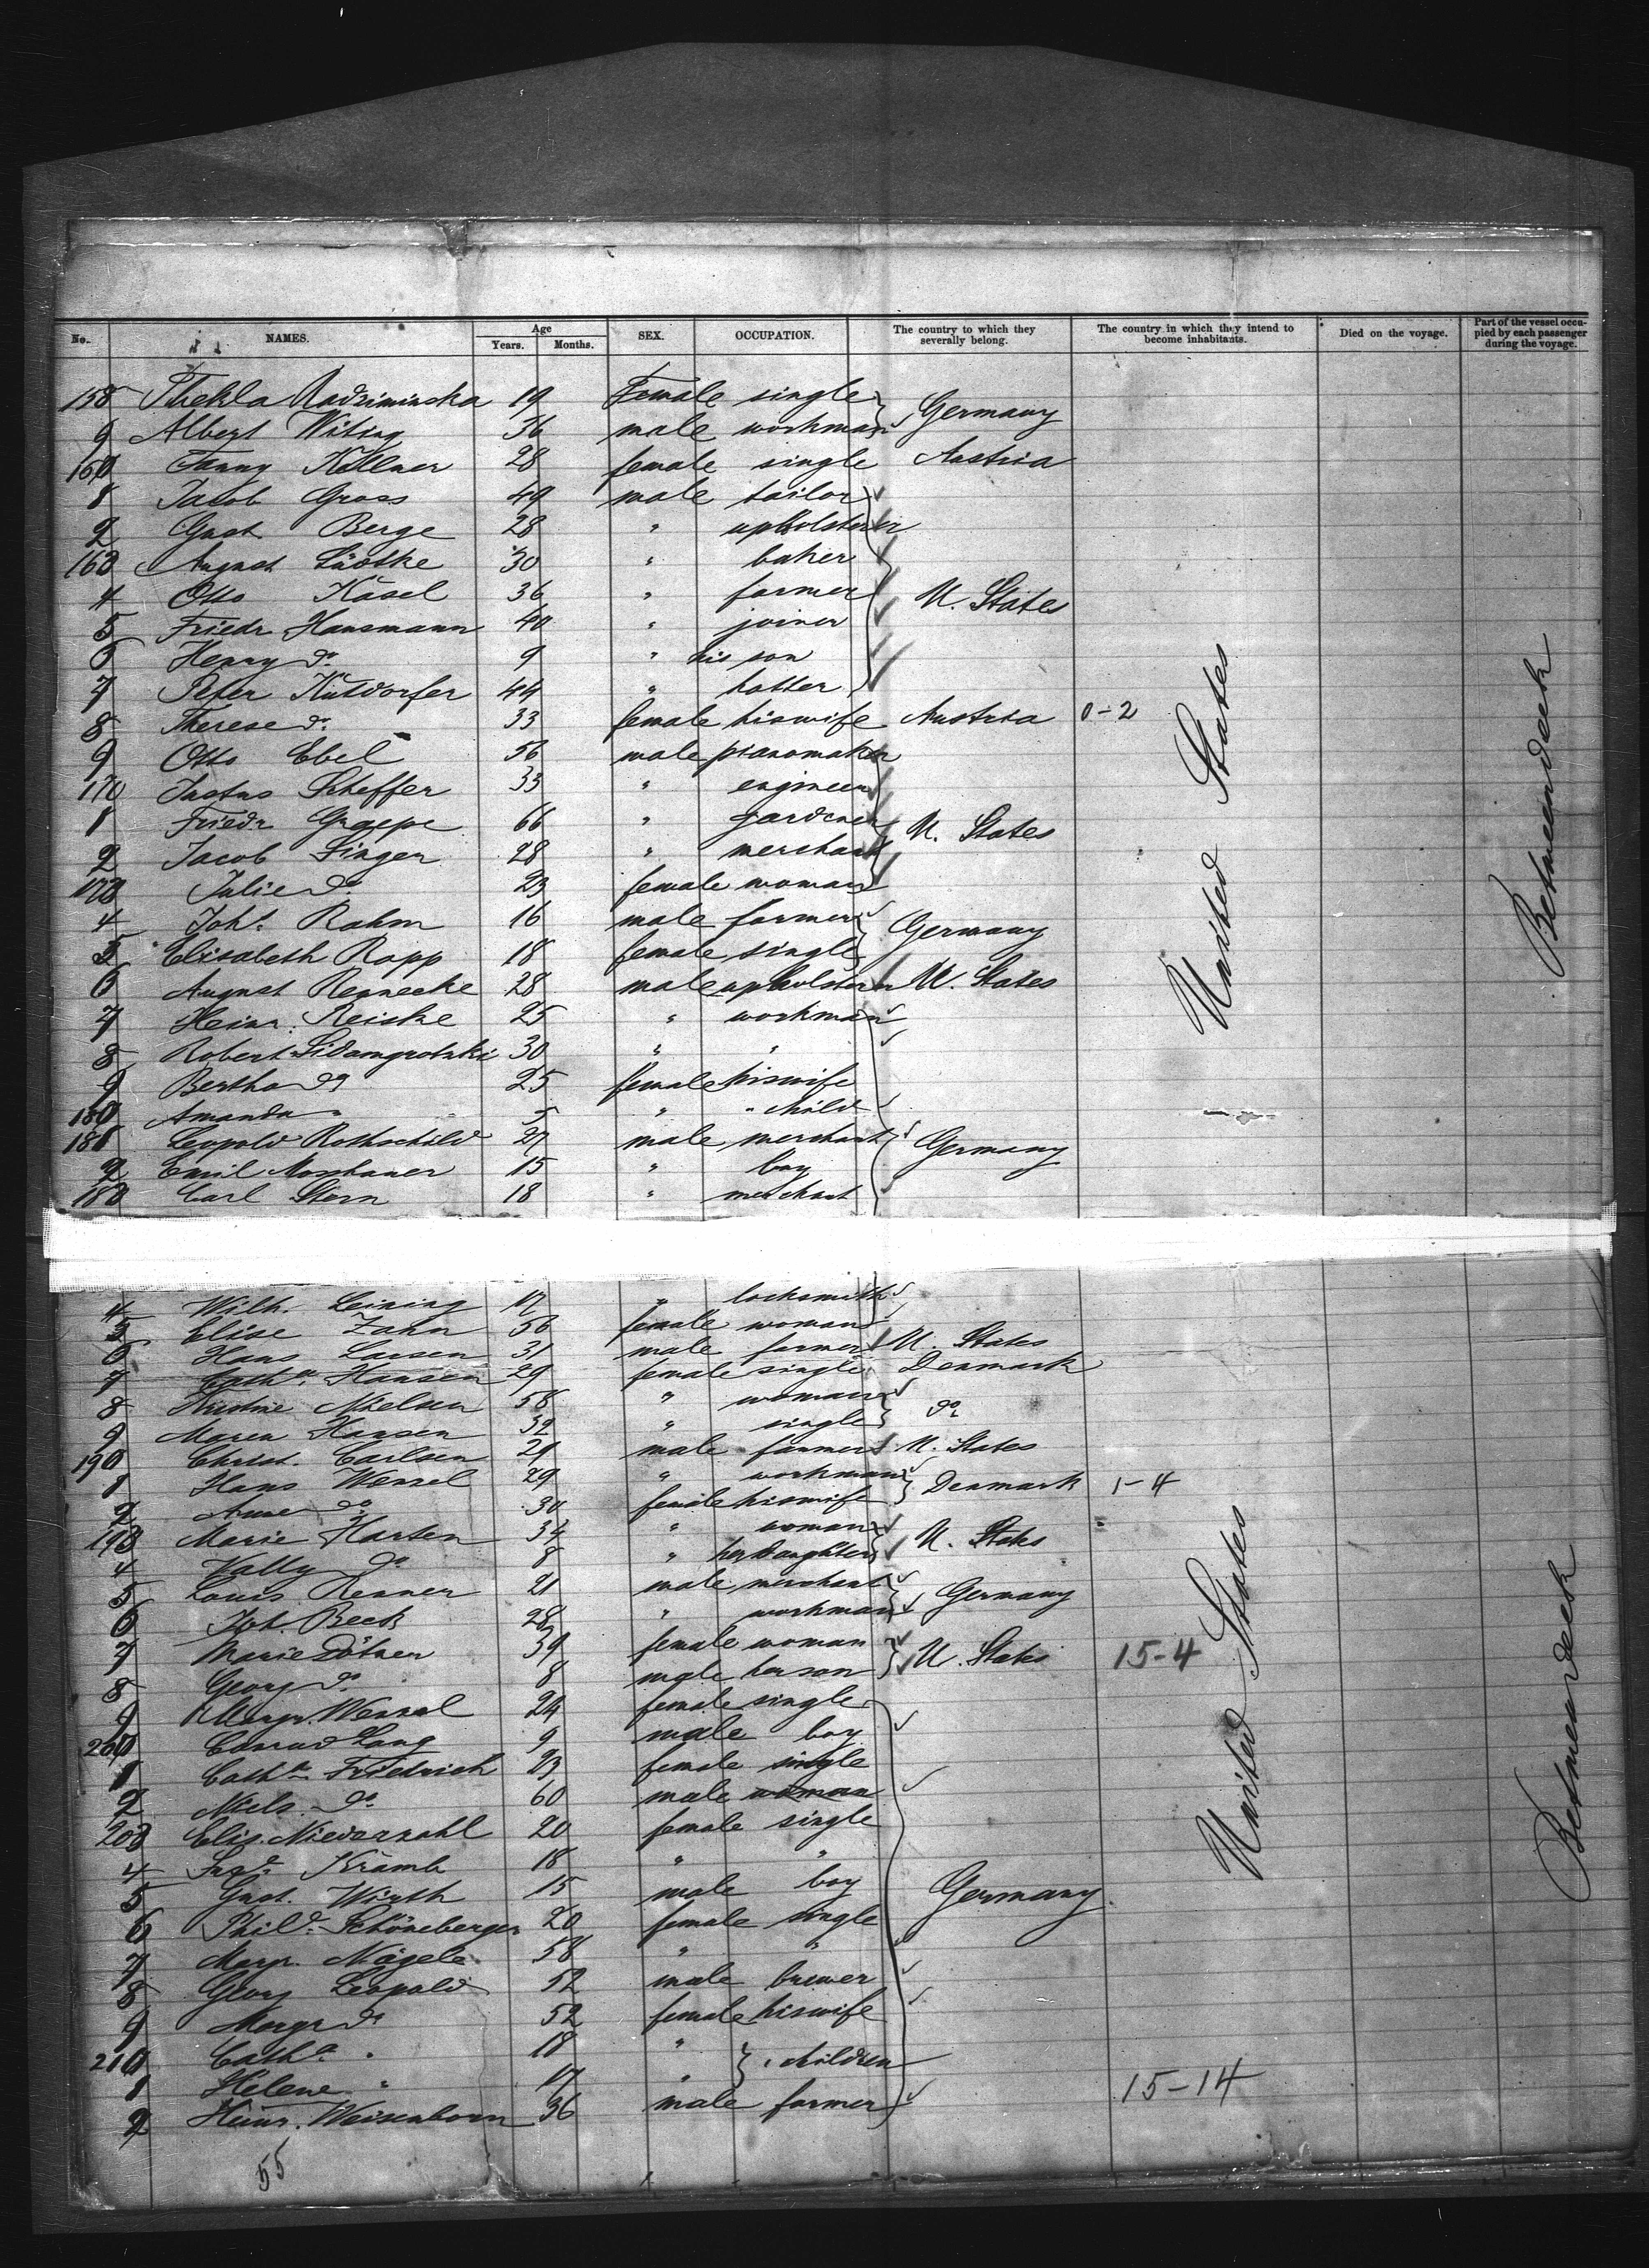 No. NAMES. Age Years. Months. SEX. OCCUPATION. The country to which they severally belong. The country in which they intend to become inhabitants. Died on the voyage. Part of the vessel occupied by each passenger during the voyage.
158 Thekla Radziminska 19 Female single
9 Albert Witing 36 male workman Germany
160 Fanny Köllner 28 female single Austria
1 Jacob Gross 49 male tailor
2 Gust Berge 28 " upholsterer
163 August Lüdtke 30 " baker
4 Otto Häsel 36 " farmer U. States
5 Friedr Hansmann 40 " joiner
6 Henry do. 9 " his son
7 Peter 44 " hatter
8 Therese do. 33 female his wife Austria 0-2
9 Otto Ebel 56 male pianomaker
170 Justus Scheffer 33 " engineer
1 Friedr Graepe 66 " gardener U. States
2 Jacob Singer 28 " merchant
173 Julie do. 23 female woman
4 Joh. Rahm 16 male farmer Germany
5 Elisabeth Rapp 18 female single
6 August Rennecke 28 male upholsterer U. States
7 Heinr. Reiske 25 " workman
8 Robert 30 " "
9 Bertha do 25 female his wife
180 Amanda " 5 " " child
181 Leopold Rothschild 27 male merchant Germany
2 Emil 15 " boy
183 Carl Stern 18 " merchant
United States
Betweendeck
4 Wilh. Leining 17 " locksmith
5 Elise Zahn 56 female woman
6 Hans Larsen 31 male farmer U. States
7 Cath. Hansen 29 female single Denmark
8 Nielsen 58 " woman do.
9 Maren Hansen 32 " single
190 Christ. Carlsen 29 male farmer U. States
1 Hans Wenzel 29 " workman Denmark 1-4
2 Anne do 30 female his wife
193 Marie Harten 34 " woman U. States
4 Vally do 8 " her daughter
5 Louis Renner 21 male merchant Germany
6 Joh. Beck 28 " workman
7 Marie Dötzer 39 female woman U. States 15-4
8 Georg do. 8 male her son
9 Margr. Wenzel 24 female single
200 Conrad Lang 9 male boy
1 Cath. Friedrich 23 female single
2 Niels do. 60 male woman
203 Elis. Niederzahl 20 female single
4 Krämb 18 " "
5 Gust. Wirth 15 male boy Germany
6 Phil. Schöneberger 20 female single
7 Margr. Nägele 58 " "
8 Georg Leopold 52 male brewer
9 Margr do 52 female his wife
210 Cath. " 18 " children
1 Helene " 17 " 15-14
2 Heinr. Weisenborn 36 male farmer
United States
Betweendeck
55